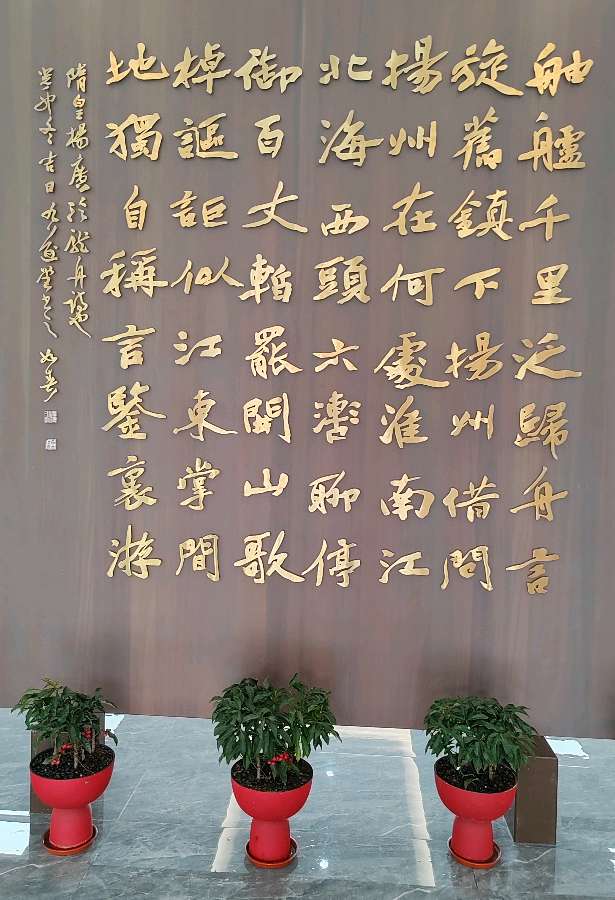 舳艫千里泛歸舟言
旋舊鎮下揚州借問
揚州在何處淮南江
北海西頭六轡聊停
御百丈暫罷開山歌
棹謳詎似江東掌間
地獨自稱言鑒裏游
隋皇楊廣泛龍舟詩也
癸卯冬吉日